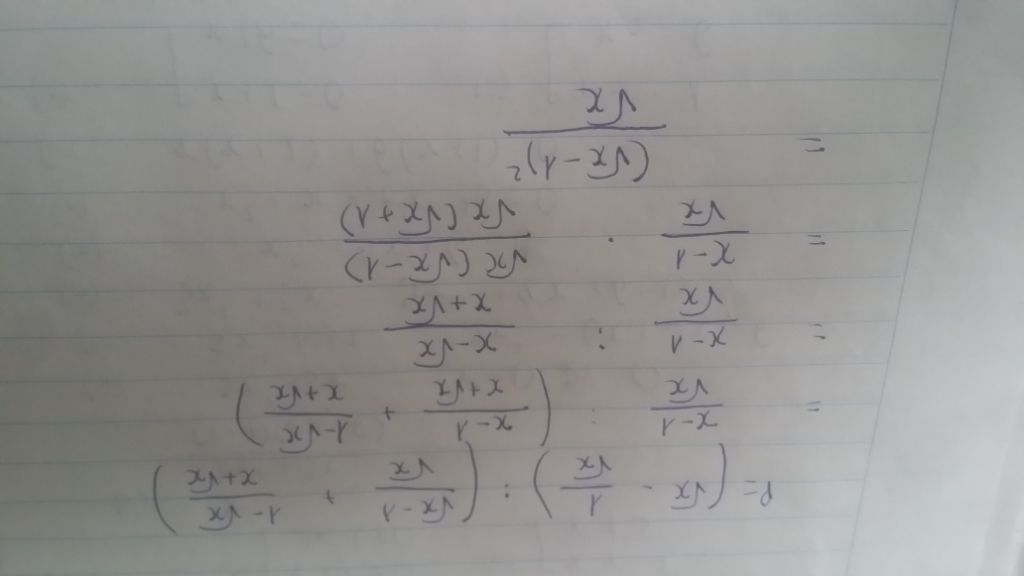 P = (√x - 1/√x) : ((√x-1)/√x + (1-√x)/(x+√x))
= (x-1)/√x : ((x-1)/(x+√x) + (1-√x)/(x+√x))
= (x-1)/√x : (x-√x)/(x+√x)
= (x-1)/√x · (√x(√x-1))/(√x(√x+1))
= (√x-1)²/√x